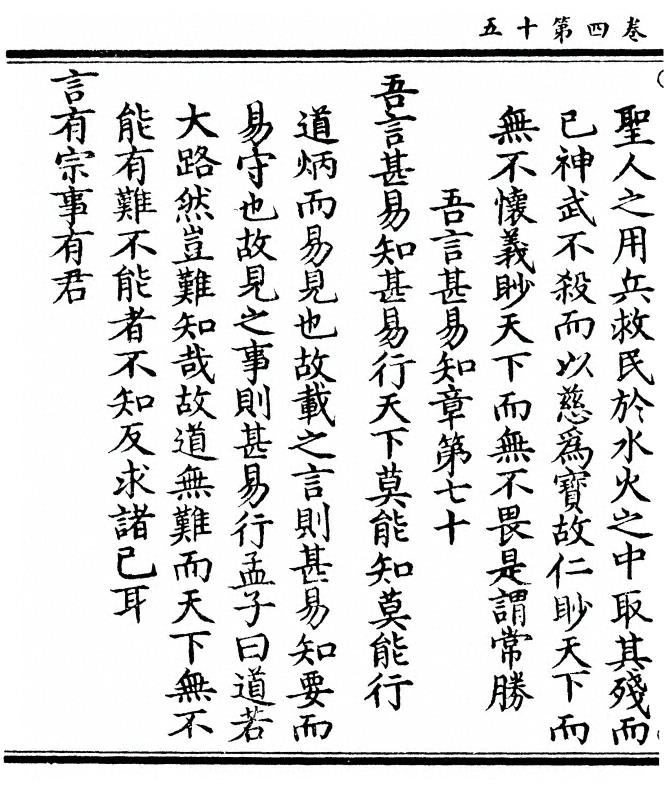 卷四第十五
聖人之用兵救民於水火之中取其殘而
已神武不殺而以慈爲寶故仁眇天下而
無不懷義眇天下而無不畏是謂常勝
吾言甚易知章第七十
吾言甚易知甚易行天下莫能知莫能行
道炳而易見也故載之言則甚易知要而
易守也故見之事則甚易行孟子曰道若
大路然豈難知哉故道無難而天下無不
能有難不能者不知反求諸己耳
言有宗事有君